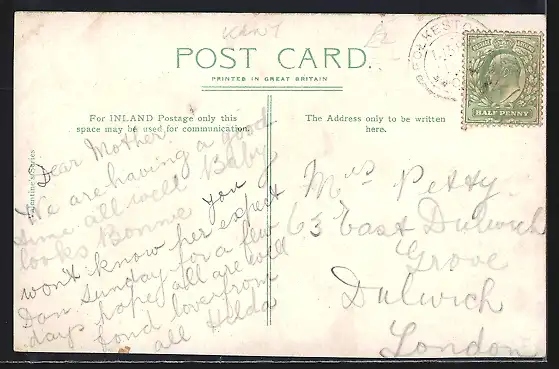 KENT
£2
POST CARD.
PRINTED IN GREAT BRITAIN
For INLAND Postage only this
space may be used for communication.
The Address only to be written
here.
Valentine's Series
FOLKESTO
HALF PENNY
Dear Mother
We are having a good
time all well Baby
looks Bonnie you
wont know her expect
Dan Sunday for a few
days hope all are well
fond love from
all Hilda
Mrs Petty
63 East Dulwich
Grove
Dulwich
London